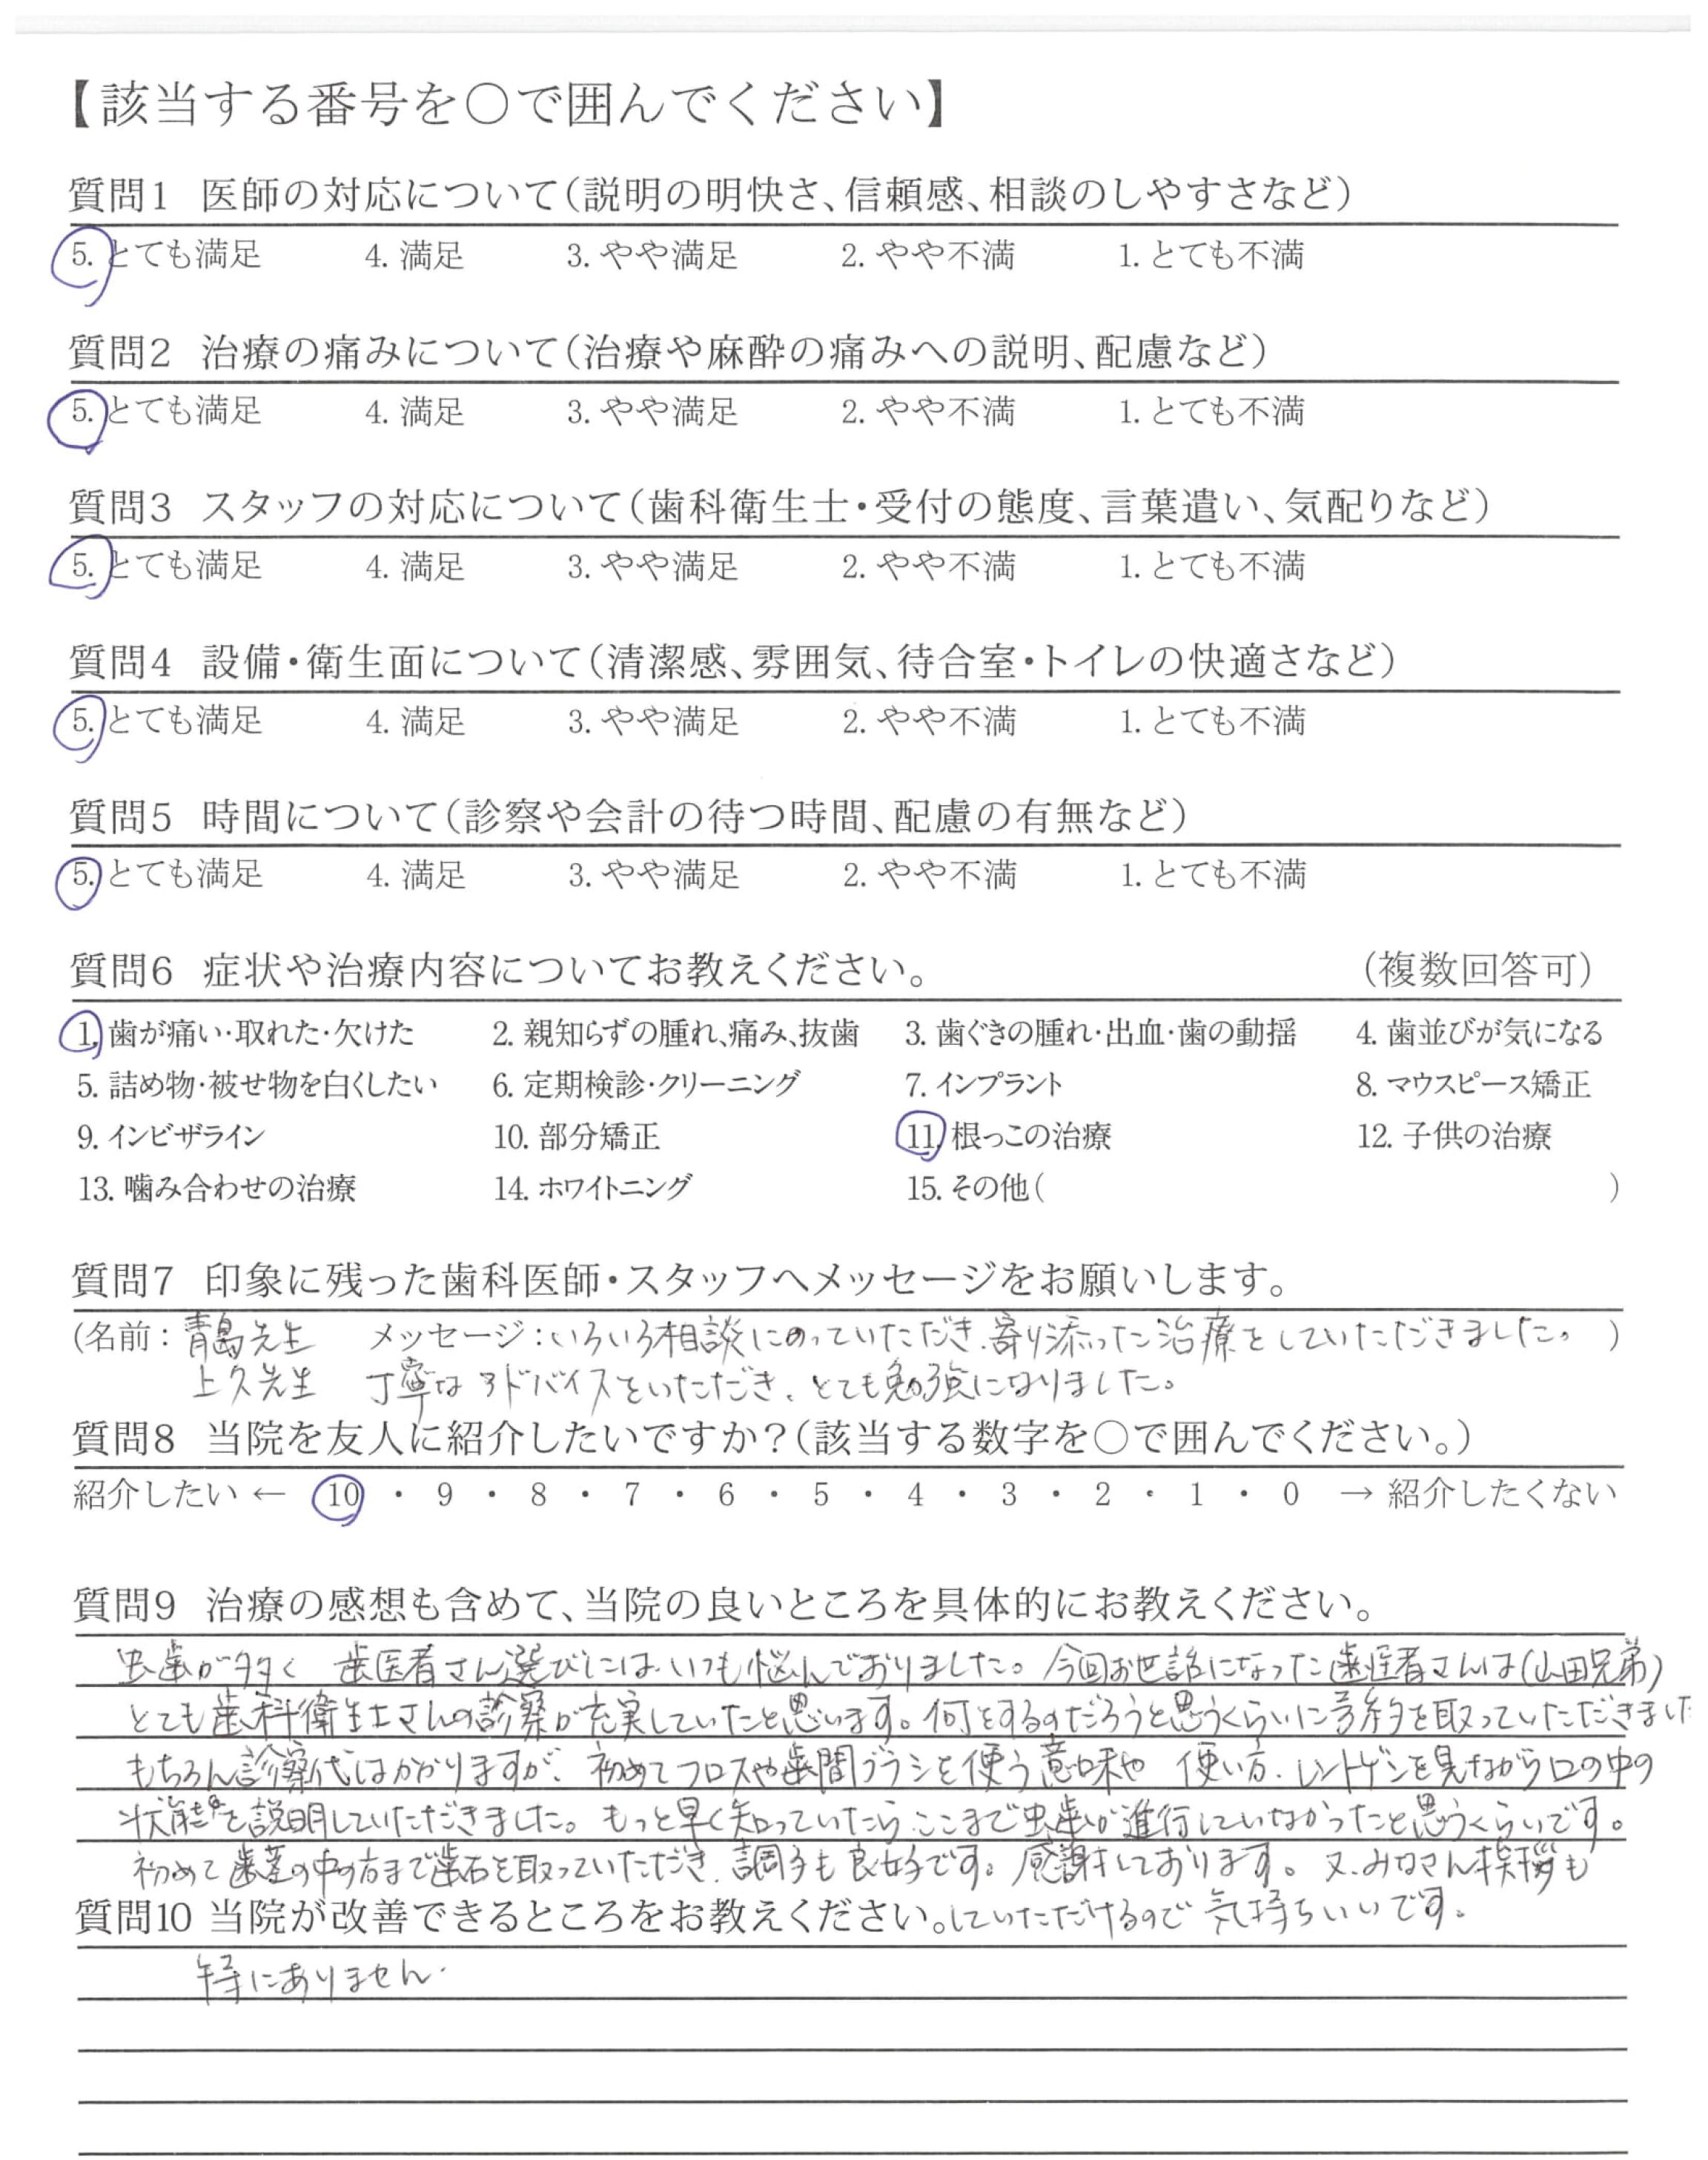 【該当する番号を〇で囲んでください】
質問1 医師の対応について(説明の明快さ、信頼感、相談のしやすさなど)
5. とても満足 4. 満足 3. やや満足 2. やや不満 1. とても不満
質問2 治療の痛みについて(治療や麻酔の痛みへの説明、配慮など)
5. とても満足 4. 満足 3. やや満足 2. やや不満 1. とても不満
質問3 スタッフの対応について(歯科衛生士・受付の態度、言葉遣い、気配りなど)
5. とても満足 4. 満足 3. やや満足 2. やや不満 1. とても不満
質問4 設備・衛生面について(清潔感、雰囲気、待合室・トイレの快適さなど)
5. とても満足 4. 満足 3. やや満足 2. やや不満 1. とても不満
質問5 時間について(診察や会計の待つ時間、配慮の有無など)
5. とても満足 4. 満足 3. やや満足 2. やや不満 1. とても不満
質問6 症状や治療内容についてお教えください。 (複数回答可)
1. 歯が痛い・取れた・欠けた 2. 親知らずの腫れ、痛み、抜歯 3. 歯ぐきの腫れ・出血・歯の動揺 4. 歯並びが気になる
5. 詰め物・被せ物を白くしたい 6. 定期検診・クリーニング 7. インプラント 8. マウスピース矯正
9. インビザライン 10. 部分矯正 11. 根っこの治療 12. 子供の治療
13. 噛み合わせの治療 14. ホワイトニング 15. その他( )
質問7 印象に残った歯科医師・スタッフへメッセージをお願いします。
(名前:青島先生 メッセージ:いろいろ相談にのっていただき、寄り添った治療をしていただきました。 )
上久先生 丁寧なアドバイスをいただき、とても勉強になりました。
質問8 当院を友人に紹介したいですか?(該当する数字を〇で囲んでください。)
紹介したい ← 10 ・ 9 ・ 8 ・ 7 ・ 6 ・ 5 ・ 4 ・ 3 ・ 2 ・ 1 ・ 0 → 紹介したくない
質問9 治療の感想も含めて、当院の良いところを具体的にお教えください。
虫歯が多く 歯医者さん選びには、いつも悩んでおりました。今回お世話になった歯医者さんは(山田兄弟)
とても歯科衛生士さんの診察が充実していたと思います。何をするのだろうと思うくらいに予約を取っていただきました
もちろん診察代はかかりますが、初めてフロスや歯間ブラシを使う意味や 使い方、レントゲンを見ながら口の中の
状態を説明していただきました。もっと早く知っていたら、ここまで虫歯が進行していなかったと思うくらいです。
初めて歯茎の中の方まで歯石を取っていただき、調子も良好です。感謝しております。又、みなさん挨拶も
質問10 当院が改善できるところをお教えください。していただけるので気持ちいいです。
特にありません.